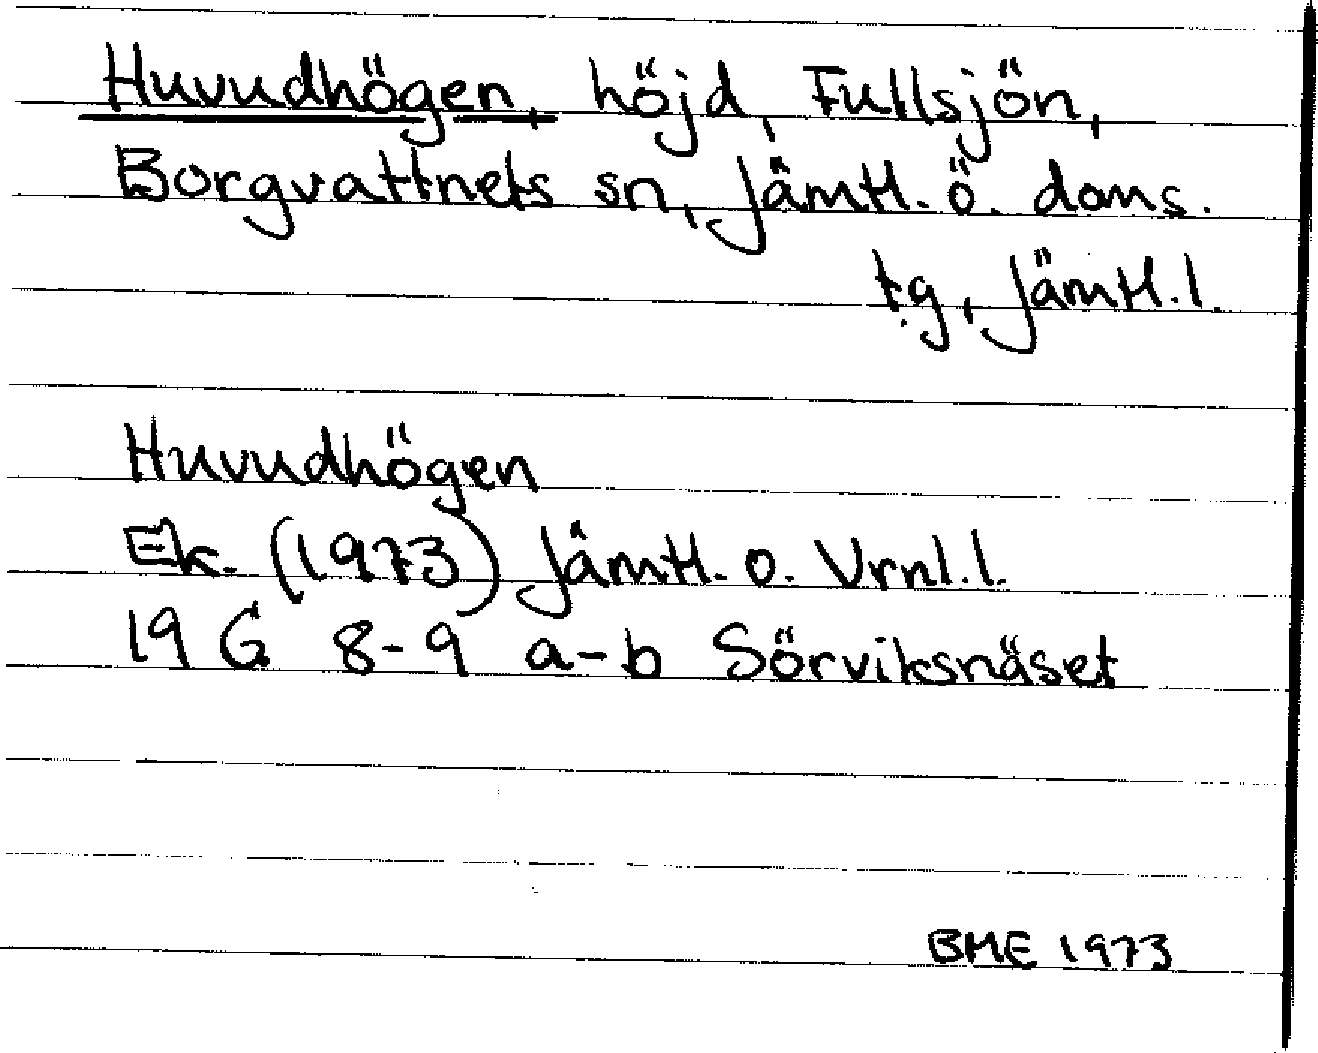 Huvudhögen, höjd, Fullsjön,
Borgvattnets sn, Jämtl. ö. doms.
tg, Jämtl. l.
Huvudhögen
Ek. (1973) Jämtl. o. Vrnl. l.
19 G 8-9 a-b Sörviksnäset
BME 1973